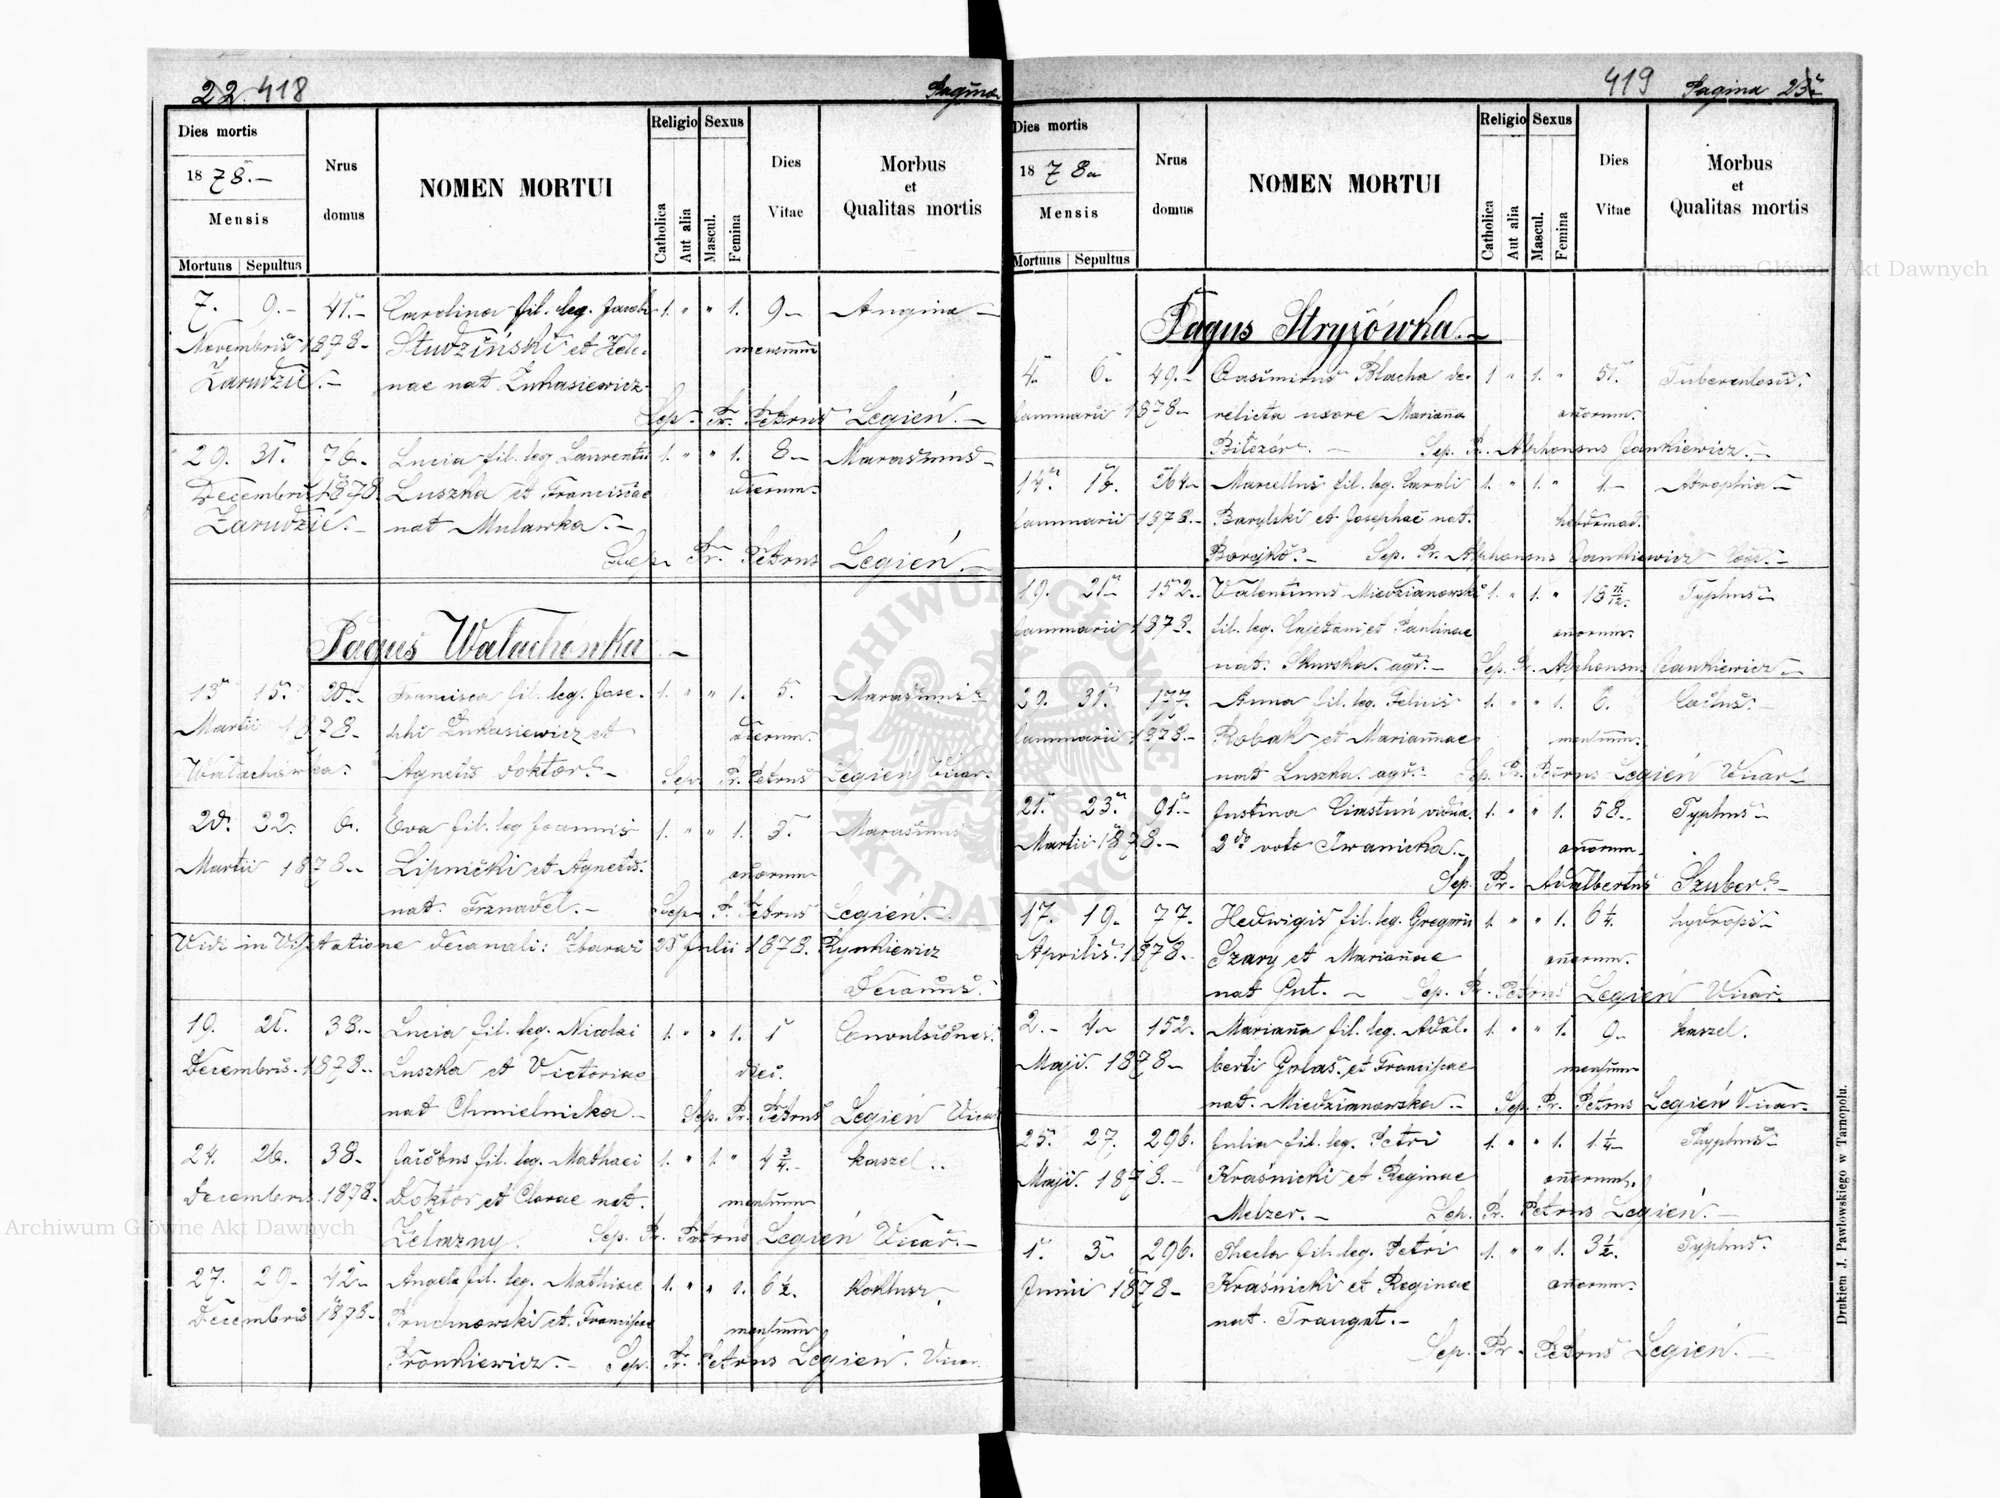 22. 418
Pagina
Dies mortis
1878.-
Mensis
Mortuus Sepultus
Nrus domus
NOMEN MORTUI
Religio
Catholica
Aut alia
Sexus
Mascul.
Femina
Dies Vitae
Morbus et Qualitas mortis
7. 9.- 41.- Carolina fil. leg. Jacobi 1. " " 1. 9- Angina-
Novembris 1878- Studziński et Hele- mensium
Zarudzie.- nae nat Łukasiewicz-
Sep. Pr. Petrus Legień.-
29. 31. 76- Lucia fil. leg Laurentii 1. " " 1. 8- Marasmus-
Decembris 1878 Luszka et Franciscae dierum-
Zarudzie.- nat Mulawka.-
Sep. Pr. Petrus Legień.-
Pagus Wałachówka.-
13 15. 20.- Francisca fil. leg. Jose- 1. " " 1. 5. Marasmus-
Martii 1878- phi Łukasiewicz et dierum-
Wałachówka. Agnetis Doktor.-
Sep. Pr. Petrus Legień Vicar.
20. 22. 6. Eva fil. leg Joannis 1. " " 1. 3. Marasmus
Martii 1878.- Lipnicki et Agnetis- annorum
nat. Trznadel.-
Sep. P. Petrus Legień.
Vidi in Visitatione decanali: Zbaraż 25 Julii 1878. Rynkiewicz
Decanus.
19. 21. 38.- Lucia fil. leg. Nicolai 1. " " 1. 1 Convulsiones.
Decembris. 1878.- Luszka et Victoriae diei.
nat Chmielnicka.-
Sep. Pr. Petrus Legień Vicar
24. 26. 38- Jacobus fil. leg. Mathaei 1. " 1. " 4 3/4.- kaszel..
Decembris. 1878. Doktor et Clarae nat. mensium
Żelazny. Sep. Pr. Petrus Legień Vicar.-
27. 29- 42- Angela fil. leg. Mathiae 1. " " 1. 6 1/2. Koklusz.
Decembris 1878- Pruchnowski et. Franciscae mensium
Fronkiewicz.- Sep. Pr. Petrus Legień. Vicar.
419 Pagina 23
Dies mortis
1878
Mensis
Mortuus Sepultus
Nrus domus
NOMEN MORTUI
Religio
Catholica
Aut alia
Sexus
Mascul.
Femina
Dies Vitae
Morbus et Qualitas mortis
Pagus Stryjówka.-
4. 6. 49.- Casimirus Błacha de- 1 " 1. " 51. Tuberculosis.
Januarii 1878- relicta uxore Marianna annorum-
Biłozór.- Sep. Pr. Alphonsus Jankiewicz.-
14. 16. 364- Marcellus fil. leg. Caroli 1. " 1. " 1- Atrophia-
Januarii 1878.- Barylski et Josephae nat. hebdomad.
Borejko.- Sep. Pr. Alphonsus Jankiewicz
19. 21- 152.- Valentinus Miedzianowski 1. " 1. " Typhus-
Januarii 1878. fil. leg. Cajetani et Paulinae annorum.
nat. Skurska. agr.- Sep. Pr. Alphonsus Jankiewicz-
29. 31. 177. Anna fil. leg. Felicis 1. " " 1. 6.
Januarii 1878.- Robak et Mariannae mensium.
nat Luszka agr.- Sep. Pr. Petrus Legień Vicar-
21. 23. 91.- Justina Ciastuń vidua. 1. " " 1. 58.- Typhus-
Martii 1878.- 2do voto Iwanicka.- annorum-
Sep. Pr. Adalbertus Szuber.-
17. 19. 77. Hedwigis fil. leg. Gregorii 1. " " 1. 6 1/4. hydropsi-
Aprilis. 1878.- Szary et Mariannae annorum.
nat Gut.- Sep. Pr. Petrus Legień Vicar.
2.- 4.- 152. Marianna fil. leg. Adal- 1. " " 1. 9- kaszel.
Maji. 1878- berti Golas. et Franciscae mensium
nat. Miedzianowska.- Sep. Pr. Petrus Legień Vicar-
25. 27. 296. Julia fil. leg. Petri 1. " " 1. 1 1/4- Thyphus-
Maji. 1878.- Kraśnicki et Reginae annorum.
Melzer.- Sep. Pr. Petrus Legień.-
1. 3. 296. Thecla fil. leg. Petri 1. " " 1. 3 1/2. Typhus.
Junii 1878- Kraśnicki et Reginae annorum.
nat. Traugat.-
Sep. Pr. Petrus Legień.-
Drukiem J. Pawłowskiego w Tarnopolu.
Archiwum Główne Akt Dawnych
Archiwum Główne Akt Dawnych
ARCHIWUM GŁÓWNE AKT DAWNYCH